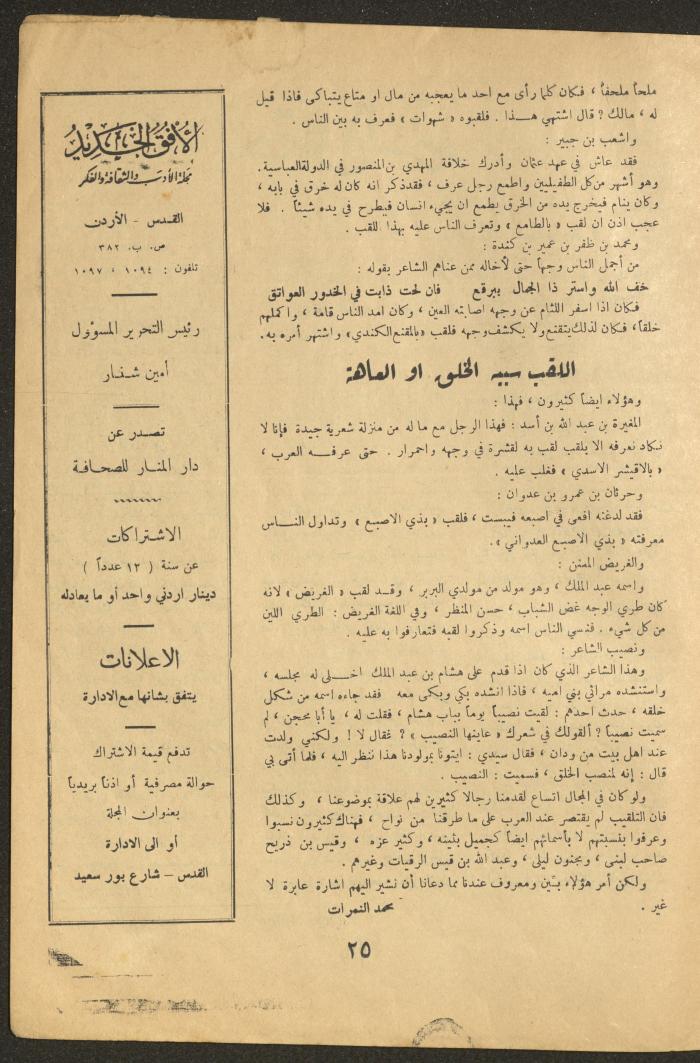 ملحاً ملحفاً ، فكان كلما رأى مع احد ما يعجبه من مال او متاع يتباكى فاذا قيل
له ، مالك ? قال اشتهي هــذا . فلقبوه « شهوات » فعرف به بين الناس .
واشعب بن جبير :
فقد عاش في عهد عثمان وأدرك خلافة المهدي بن المنصور في الدولة العباسية.
وهو أشهر من كل الطفيليين واطمع رجل عرف ، فقد ذكر انه كان له خرق في بابه ،
وكان ينام فيخرج يده من الخرق يطمع ان يجيء انسان فيطرح في يده شيئاً . فلا
عجب اذن ان لقب « بالطامع » وتعرف الناس عليه بهذا للقب .
ومحمد بن ظفر بن عمير بن كندة :
من أجمل الناس وجهاً حتى لأخاله ممن عناهم الشاعر بقوله :
خف الله واستر ذا الجمال ببرقع فان لحت ذابت في الخدور العواتق
فكان اذا اسفر اللثام عن وجهه اصابته العين ، وكان امد الناس قامة ، واكملهم
خلقاً ، فكان لذلك يتقنع ولا يكشف وجهه فلقب «بالمقنع الكندي» واشتهر أمره به.
اللقب سببه الخلق او العاهة
وهؤلاء ايضاً كثيرون ، فهذا :
المغيرة بن عبد الله بن أسد : فهذا الرجل مع ما له من منزلة شعرية جيدة فإنا لا
نكاد نعرفه الا بلقب لقب به لقشرة في وجهه واحمرار . حتى عرفــه العرب ،
« بالاقيشر الاسدي » فغلب عليه .
وحرثان بن عمرو بن عدوان :
فقد لدغته افعى في اصبعه فيبست ، فلقب « بذي الاصبع » وتداول النــاس
معرفته « بذي الاصبع العدواني ».
والغريض المغنن :
واسمه عبد الملك ، وهو مولد من مولدي البربر ، وقــد لقب « الغريض » لانه
كان طري الوجه غض الشباب ، حسن المنظر ، وفي اللغة الغريض : الطري اللين
من كل شيء . فنسي الناس اسمه وذكروا لقبه فتعارفوا به عليه .
ونصيب الشاعر :
وهذا الشاعر الذي كان اذا قدم على هشام بن عبد الملك اخــلى له مجلسه ،
واستنشده مراثي بني اميه ، فاذا انشده بكي وبكى معه فقد جاءه اسمه من شكل
خلقه ، حدث احدهم : لقيت نصيباً يوماً بباب هشام ، فقلت له ، يا أبا محجن ، لم
سميت نصيباً ? ألقولك في شعرك « عاينها النصيب » ? فقال لا ! ولكني ولدت
عند اهل بيت من ودان ، فقال سيدي : ايتونا بمولودنا هذا ننظر اليه ، فلما أتى بي
قال : إنه لمنصب الخلق ، فسميت : النصيب .
ولو كان في المجال اتساع لقدمنا رجالا كثيرين لهم علاقة بموضوعنا ، وكذلك
فان التلقيب لم يقتصر عند العرب على ما طرقنا من نواح ، فهناك كثيرون نسبوا
وعرفوا بنسبتهم لا بأسمائهم ايضاً كجميل بثينه ، وكثير عزه ، وقيس بن ذريح
صاحب لبنى ، ومجنون ليلى ، وعبد الله بن قيس الرقيات وغيرهم .
ولكن أمر هؤلاء بيّن ومعروف عندنا مما دعانا أن نشير اليهم اشارة عابرة لا
غير .
محمد النمرات
٢٥
الأفق الجديد
مجلة الأدب والثقافة والفكر
القــدس – الأردن
ص. ب. ٣٨٢
تلفون : ١٠٩٤ ، ١٠٩٧
رئيس التحرير المسؤول
أمين شــنار
تصــدر عن
دار المنــار للصحــافـة
الاشتراكات
عن سنة ( ١٢ عدداً )
دينار اردني واحد أو ما يعادله
الاعلانات
يتفق بشانها مع الادارة
تدفع قيمة الاشتراك
حوالة مصرفية أو اذناً بريدياً
بعنوان المجلة
أو الى الادارة
القدس – شارع بور سعيد